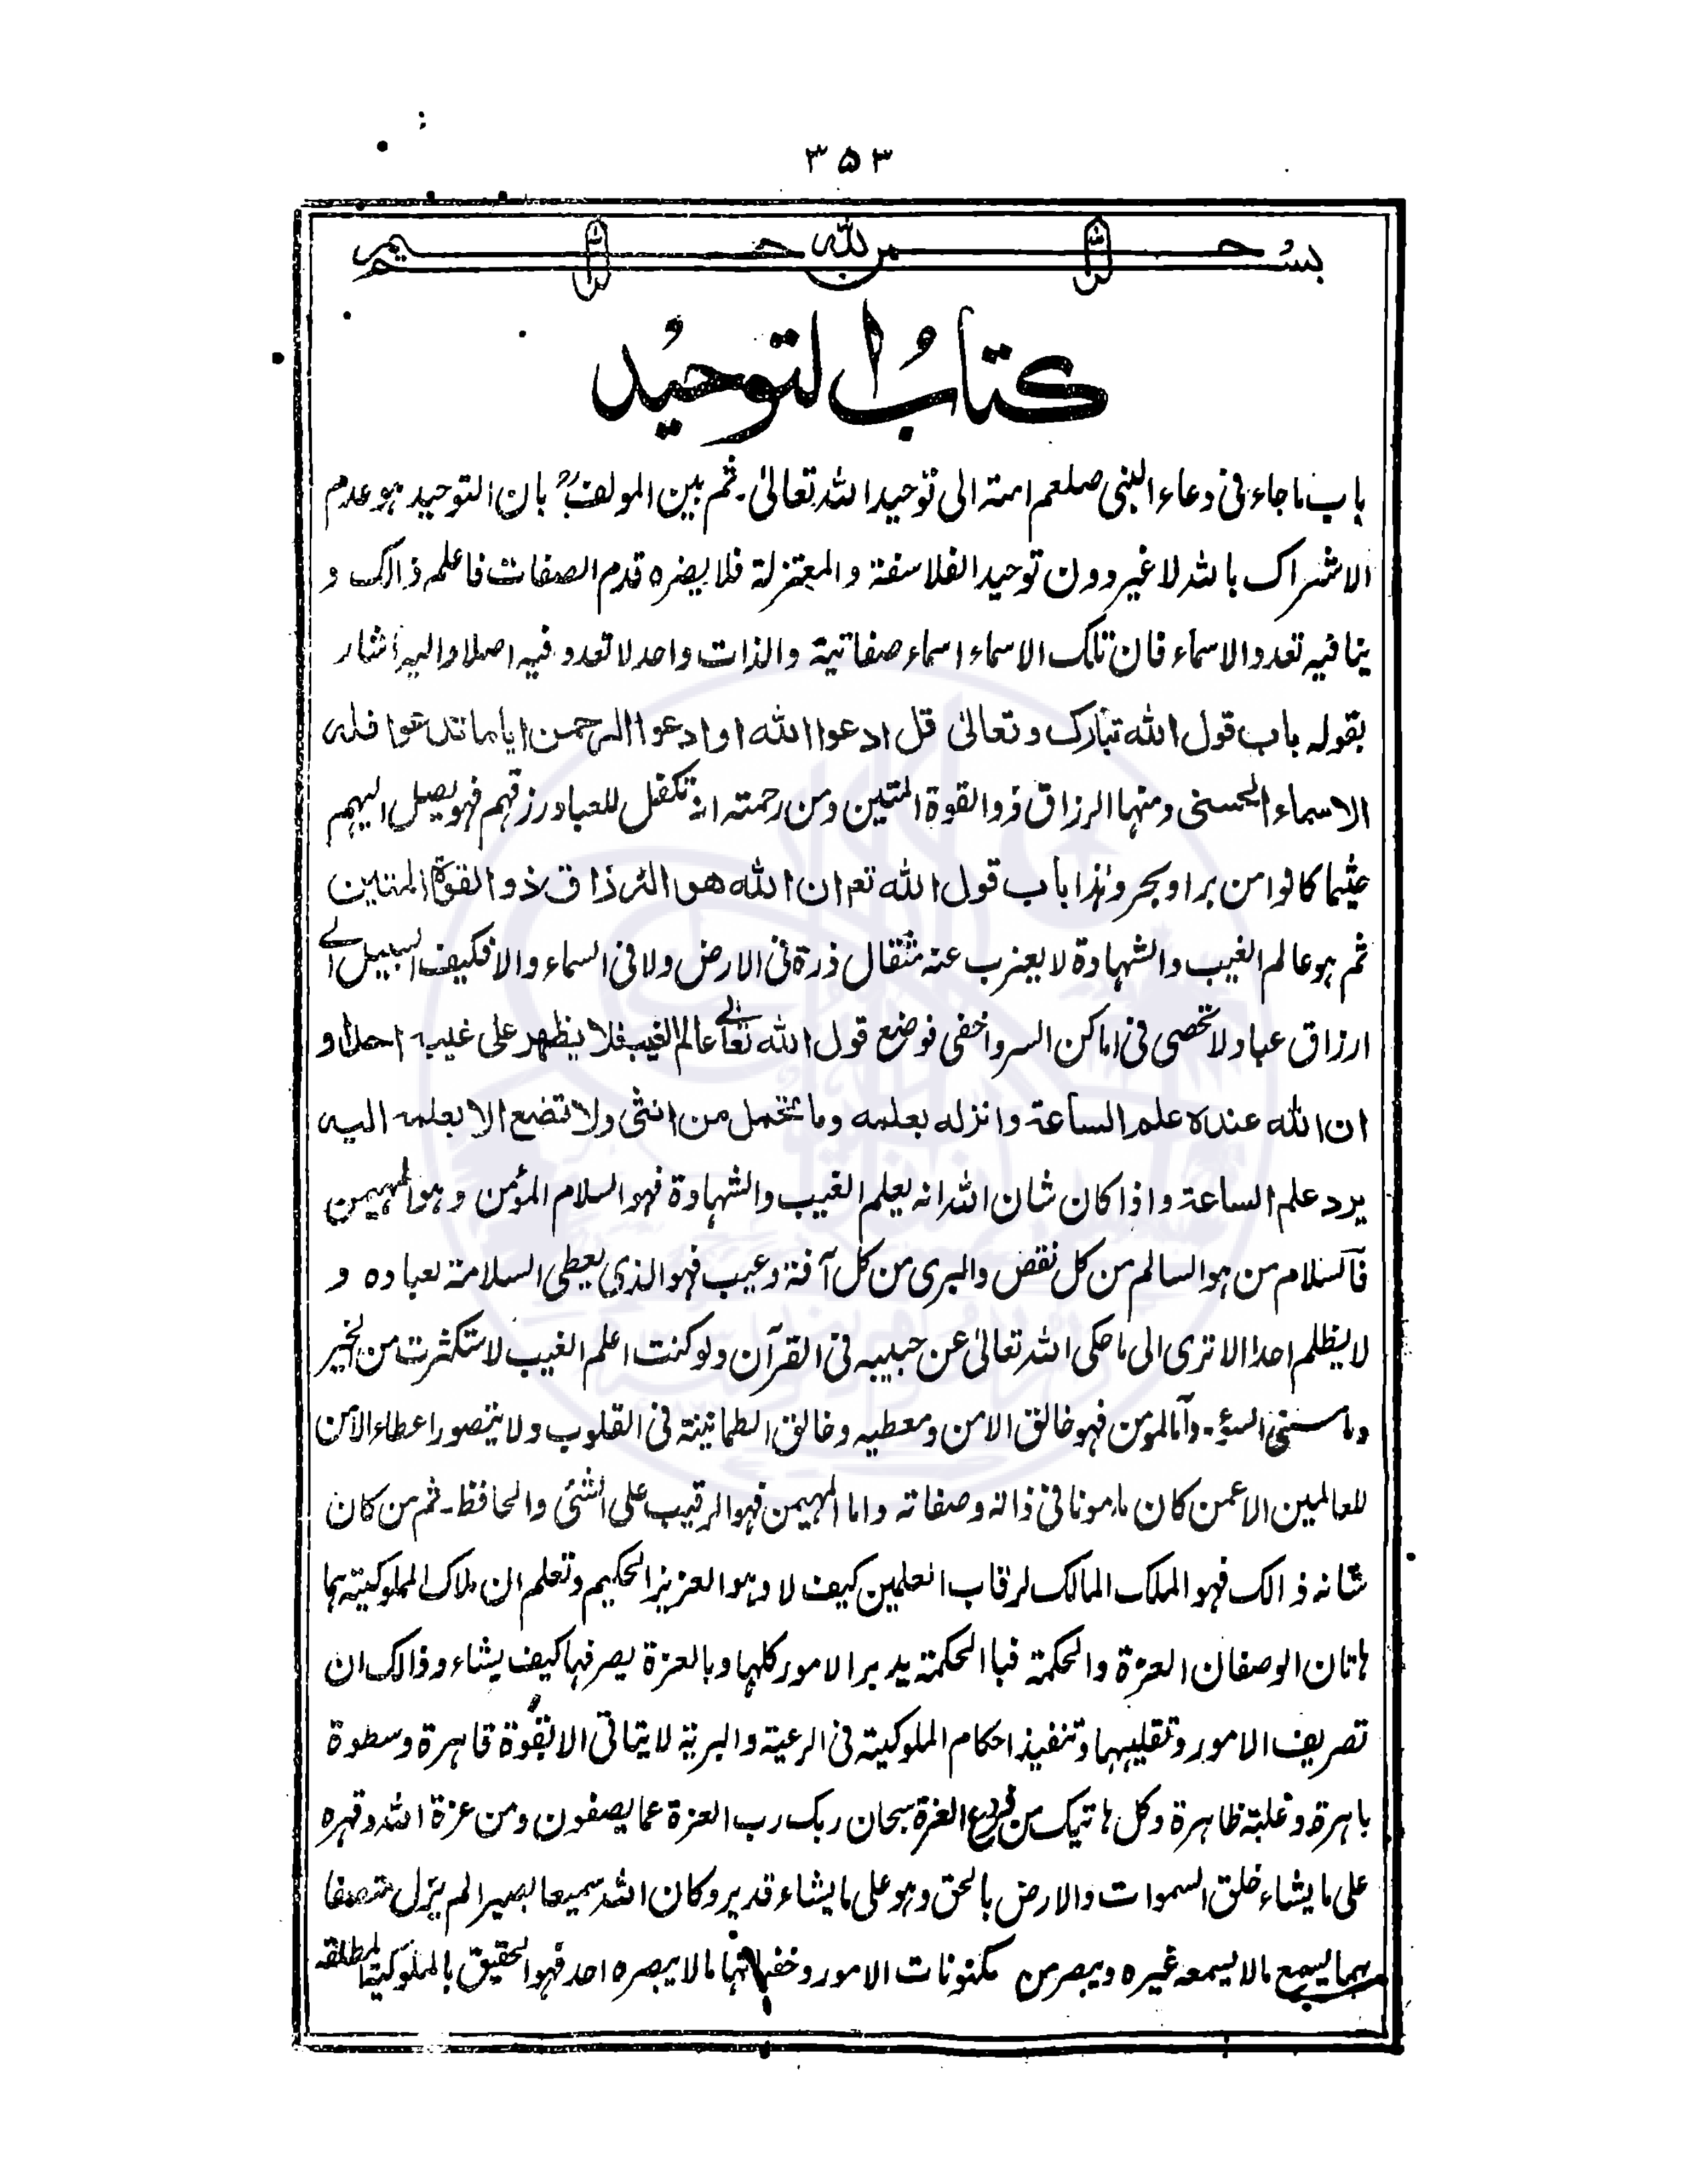 ۳۵۳
بسم الله الرحمن الرحيم
كتابُ التوحيُد
باب ما جاء فى دعاء النبى صلعم امته الى توحيد الله تعالىٰ۔ ثم بين المولفؒ بان التوحيد هو عدم
الاشراك بالله لا غير دون توحيد الفلاسفة والمعتزلة فلا يضره قدم الصفات فاعلم ذالك و
ينافيه تعدد الاسماء فان تلك الاسماء اسماء صفاتية والذات واحد لا تعدد فيه اصلا واليه اشار
بقوله باب قول الله تبارك وتعالىٰ قل ادعوا الله او ادعوا الرحمن ايا ما تدعوا فله
الاسماء الحسنى ومنها الرزاق ذو القوة المتين ومن رحمته انه تكفل للعباد رزقهم فهو يصل اليهم
حيثما كانوا من بر او بحر وهذا باب قول الله تع ان الله هو الرزاق ذو القوة المتين
ثم هو عالم الغيب والشهادة لا يعزب عنه مثقال ذرة فى الارض ولا فى السماء والا فكيف السبيل الے
ارزاق عباد لا تحصى فى اماكن السر واخفى فوضع قول الله تعالے عالم الغيب فلا يظهر على غيبه احدا و
ان الله عنده علم الساعة وانزله بعلمه وما تحمل من انثى ولا تضع الا بعلمه اليه
يرد علم الساعة واذا كان شان الله انه يعلم الغيب والشهادة فهو السلام المؤمن وهو المهيمن
فآلسلام من هو السالم من كل نقض والبرى من كل آفة وعيب فهو الذي يعطى السلامة لعباده و
لا يظلم احدا الا ترى الى ما حكى الله تعالىٰ عن حبيبه فى القرآن ولو كنت اعلم الغيب لاستكثرت من الخير
وما مسنى السوء۔ وآما المومن فهو خالق الامن ومعطيه وخالق الطمانينة فى القلوب ولا يتصور اعطاء الامن
للعالمين الا عمن كان مامونا فى ذاته وصفاته واما المهيمن فهو الرقيب على الشئ والحافظ۔ ثم من كان
شانه ذالك فهو الملك المالك لرقاب العلمين كيف لا وهو العزيز الحكيم وتعلم ان ملاك المملوكية هما
هاتان الوصفان العزة والحكمة فبا الحكمة يدبر الامور كلها وبالعزة يصرفها كيف يشاء وذالك ان
تصريف الامور وتقليبها وتنفيذ احكام الملوكية فى الرعية والبرية لا يتاتى الا بقوة قاهرة وسطوة
باهرة وغلبة ظاهرة وكل هاتيك من فروع العزة سبحان ربك رب العزة عما يصفون ومن عزة الله وقهره
على ما يشاء خلق السموات والارض بالحق وهو على ما يشاء قدير وكان الله سميعا بصيرا لم يزل متصفا
بهما يسمع مالا يسمعه غيره ويبصر من مكنونات الامور وخفياتها مالا يبصره احد فهو الحقيق بالملوكية المطلقه